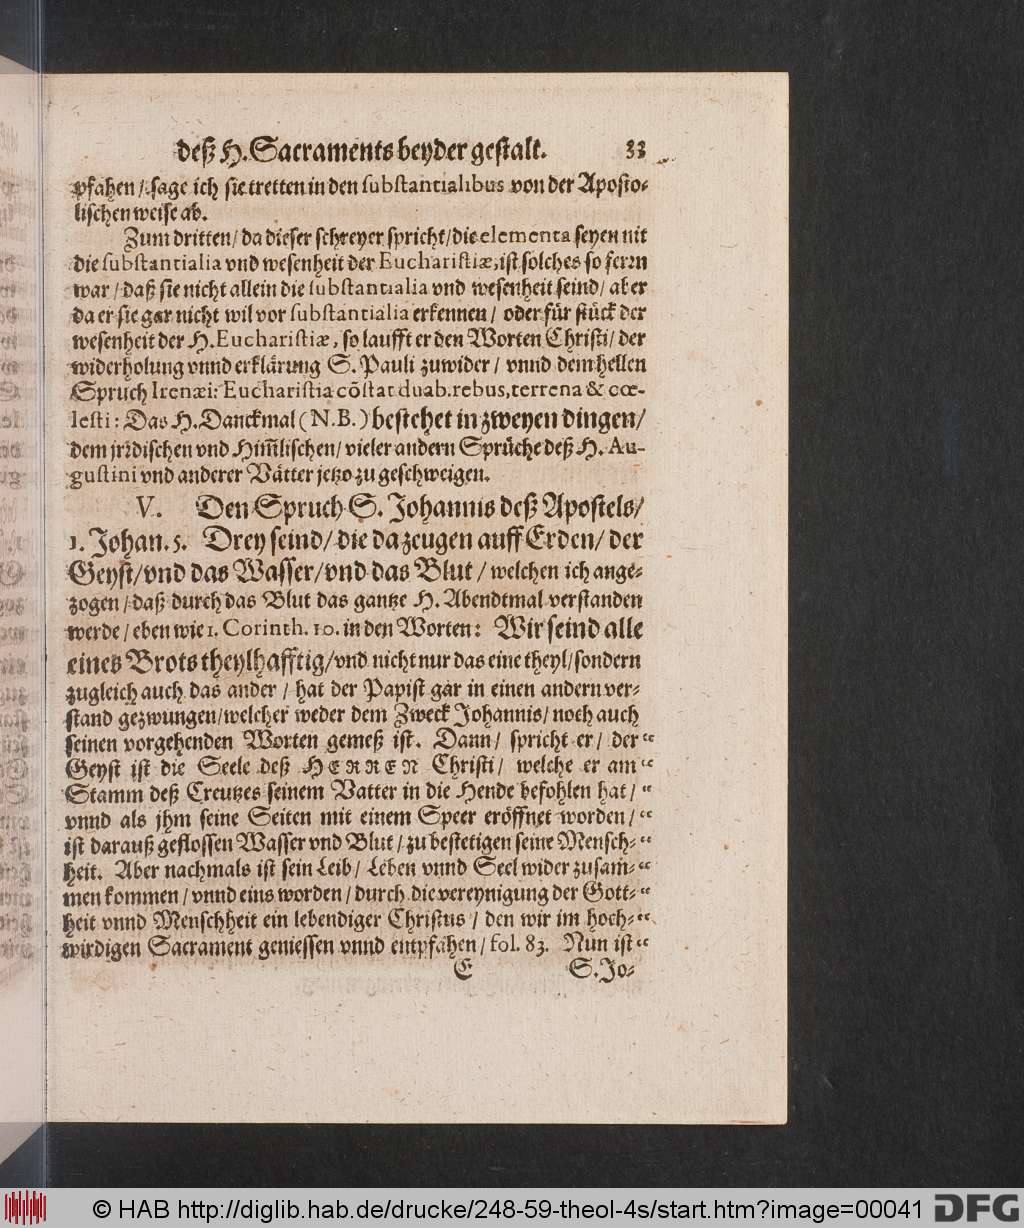 deß H. Sacraments beyder gestalt. 33
pfahen / sage ich sie tretten in den substantialibus von der Aposto-
lischen weise ab.
Zum dritten / da dieser schreyer spricht / die elementa seyen nit
die substantialia vnd wesenheit der Eucharistiæ, ist solches so ferꝛn
war / daß sie nicht allein die substantialia vnd wesenheit seind / aber
da er sie gar nicht wil vor substantialia erkennen / oder für stück der
wesenheit der H. Eucharistiæ, so laufft er den Worten Christi / der
widerholung vnnd erklärung S. Pauli zuwider / vnnd dem hellen
Spruch Irenæi: Eucharistia cõstat duab. rebus, terrena & cœ-
lesti: Das H. Danckmal (N.B.) bestehet in zweyen dingen /
dem jrꝛdischen vnd Him̃lischen / vieler andern Sprüche deß H. Au-
gustini vnd anderer Vätter jetzo zu geschweigen.
V. Den Spruch S. Johannis deß Apostels /
1. Johan. 5. Drey seind / die da zeugen auff Erden / der
Geyst / vnd das Wasser / vnd das Blut / welchen ich ange-
zogen / daß durch das Blut das gantze H. Abendtmal verstanden
werde / eben wie 1. Corinth. 10. in den Worten: Wir seind alle
eines Brots theylhafftig / vnd nicht nur das eine theyl / sondern
zugleich auch das ander / hat der Papist gar in einen andern ver-
stand gezwungen / welcher weder dem Zweck Johannis / noch auch
seinen vorgehenden Worten gemeß ist. Dann / spricht er / der “
Geyst ist die Seele deß HERREN Christi / welche er am “
Stamm deß Creutzes seinem Vatter in die Hende befohlen hat / “
vnnd als jhm seine Seiten mit einem Speer eröffnet worden / “
ist darauß geflossen Wasser vnd Blut / zu bestetigen seine Mensch- “
heit. Aber nachmals ist sein Leib / Leben vnnd Seel wider zusam- “
men kommen / vnnd eins worden / durch die vereynigung der Gott- “
heit vnnd Menschheit ein lebendiger Christus / den wir im hoch- “
wirdigen Sacrament geniessen vnnd entpfahen / fol. 83. Nun ist “
E S. Jo-
© HAB http://diglib.hab.de/drucke/248-59-theol-4s/start.htm?image=00041 DFG